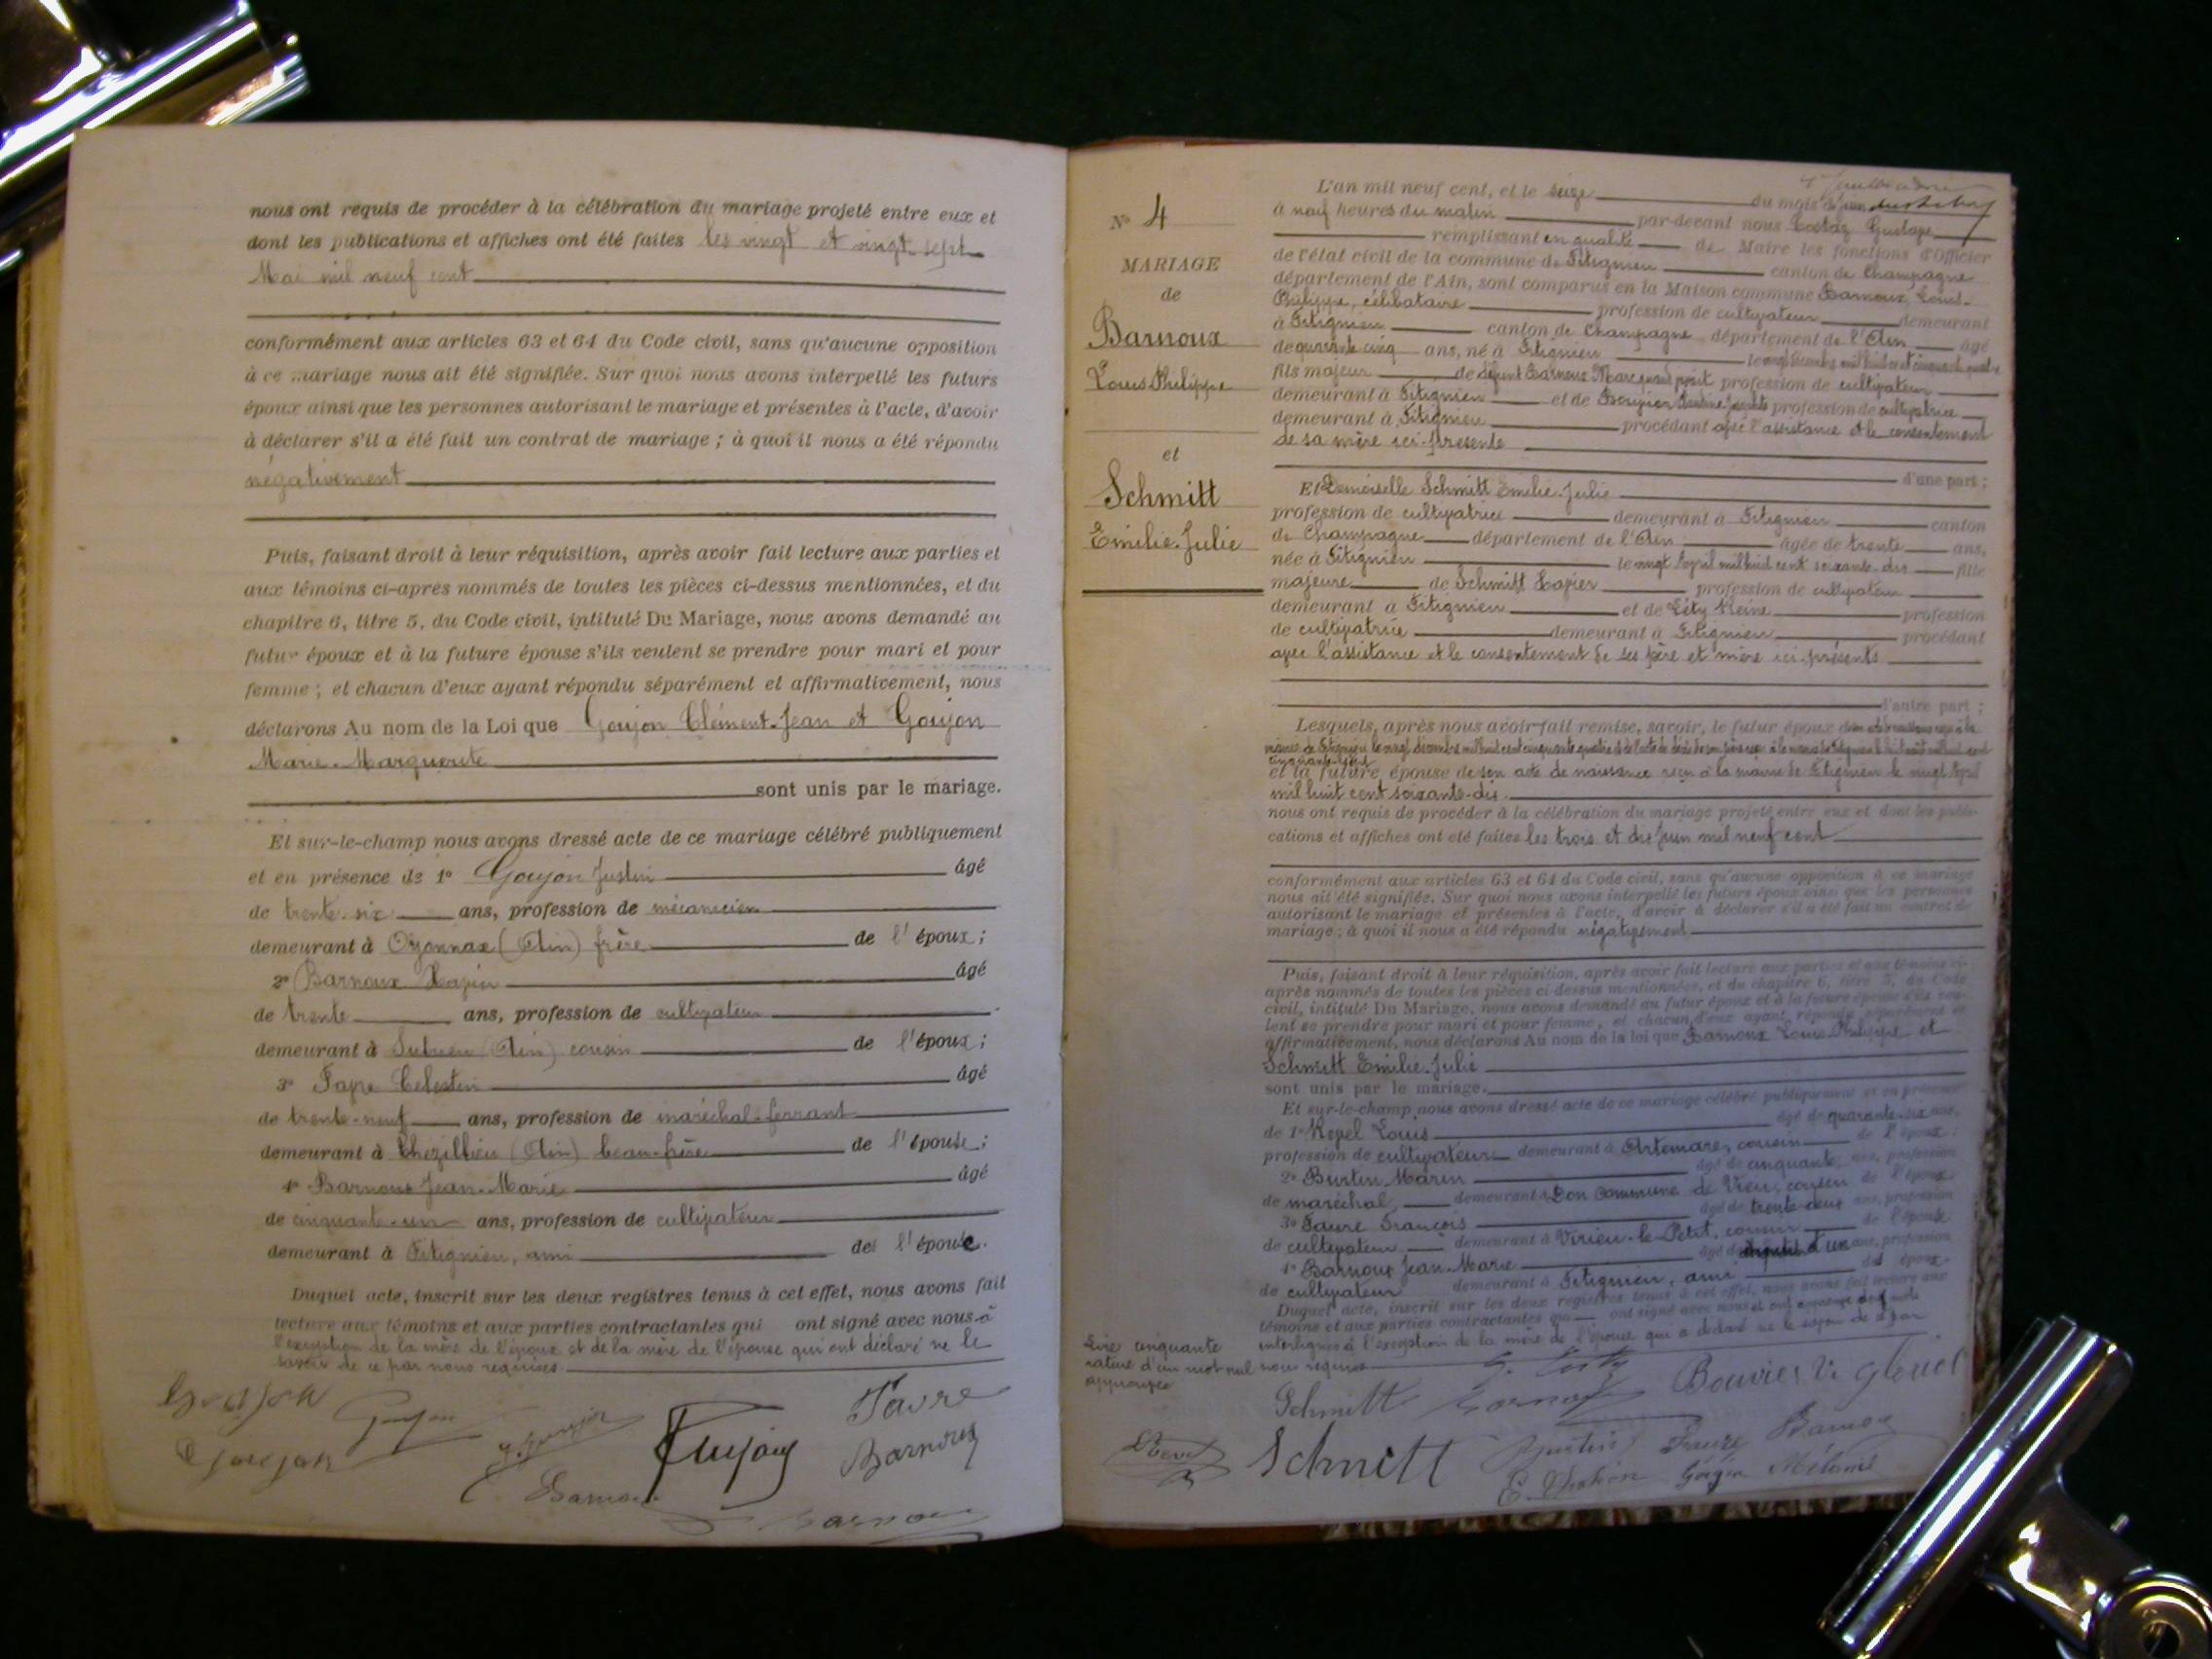 nous ont requis de procéder à la célébration du mariage projeté entre eux et
dont les publications et affiches ont été faites les vingt et vingt sept
Mai mil neuf cent
conformément aux articles 63 et 64 du Code civil, sans qu'aucune opposition
à ce mariage nous ait été signifiée. Sur quoi nous avons interpellé les futurs
époux ainsi que les personnes autorisant le mariage et présentes à l'acte, d'avoir
à déclarer s'il a été fait un contrat de mariage ; à quoi il nous a été répondu
négativement
Puis, faisant droit à leur réquisition, après avoir fait lecture aux parties et
aux témoins ci-après nommés de toutes les pièces ci-dessus mentionnées, et du
chapitre 6, titre 5, du Code civil, intitulé Du Mariage, nous avons demandé au
futur époux et à la future épouse s'ils veulent se prendre pour mari et pour
femme ; et chacun d'eux ayant répondu séparément et affirmativement, nous
déclarons Au nom de la Loi que Goujon Clément-Jean et Goujon
Marie-Marguerite
sont unis par le mariage.
Et sur-le-champ nous avons dressé acte de ce mariage célébré publiquement
et en présence de 1° Goujon Justin âgé
de trente-six ans, profession de mécanicien
demeurant à Oyonnax (Ain) frère de l'époux ;
2° Barnoux Xavier âgé
de trente ans, profession de cultivateur
demeurant à Sutrieu (Ain) cousin de l'époux ;
3° Favre Célestin âgé
de trente-neuf ans, profession de maréchal-ferrant
demeurant à Chezillieu (Ain) beau-frère de l'épouse ;
4° Barnoux Jean-Marie âgé
de cinquante-un ans, profession de cultivateur
demeurant à Fitignieu, ami de l'épouse.
Duquel acte, inscrit sur les deux registres tenus à cet effet, nous avons fait
lecture aux témoins et aux parties contractantes qui ont signé avec nous à
l'exception de la mère de l'époux et de la mère de l'épouse qui ont déclaré ne le
savoir de ce par nous requises.
Goujon
J. Goujon
Goujon
Favre
Barnoux
Barnoux
N° 4
MARIAGE
de
Barnoux
Louis Philippe
et
Schmitt
Emilie-Julie
L'an mil neuf cent, et le seize du mois de juin
à neuf heures du matin par-devant nous Costaz Gustave
remplissant en qualité de Maire les fonctions d'Officier
de l'état civil de la commune de Fitignieu canton de Champagne
département de l'Ain, sont comparus en la Maison commune Barnoux, Louis-
Philippe, célibataire profession de cultivateur demeurant
à Fitignieu canton de Champagne département de l'Ain âgé
de quarante cinq ans, né à Fitignieu le vingt décembre mil huit cent cinquante quatre
fils majeur de défunt Barnoux Marc profession de cultivateur
demeurant à Fitignieu et de Bouvier profession de cultivatrice
demeurant à Fitignieu procédant avec l'assistance et le consentement
de sa mère ici présente
d'une part ;
Et Demoiselle Schmitt Emilie-Julie
profession de cultivatrice demeurant à Fitignieu canton
de Champagne département de l'Ain âgée de trente ans,
née à Fitignieu le vingt Avril mil huit cent soixante-dix fille
majeure de Schmitt Xavier profession de cultivateur
demeurant à Fitignieu et de Léty Reine profession
de cultivatrice demeurant à Fitignieu procédant
avec l'assistance et le consentement de ses père et mère ici présents
d'autre part ;
Lesquels, après nous avoir fait remise, savoir, le futur époux
mairie de Fitignieu le vingt décembre mil huit cent cinquante quatre et de l'acte de décès de son père
cinquante-sept
et la future épouse de son acte de naissance reçu à la mairie de Fitignieu le vingt Avril
mil huit cent soixante-dix
nous ont requis de procéder à la célébration du mariage projeté entre eux et dont les publi-
cations et affiches ont été faites les trois et dix Juin mil neuf cent
conformément aux articles 63 et 64 du Code civil, sans qu'aucune opposition à ce mariage
nous ait été signifiée. Sur quoi nous avons interpellé les futurs époux ainsi que les personnes
autorisant le mariage et présentes à l'acte, d'avoir à déclarer s'il a été fait un contrat de
mariage ; à quoi il nous a été répondu négativement
Puis, faisant droit à leur réquisition, après avoir fait lecture aux parties et aux témoins ci-
après nommés de toutes les pièces ci-dessus mentionnées, et du chapitre 6, titre 5, du Code
civil, intitulé Du Mariage, nous avons demandé au futur époux et à la future épouse s'ils veu-
lent se prendre pour mari et pour femme, et chacun d'eux ayant répondu séparément et
affirmativement, nous déclarons Au nom de la loi que Barnoux Louis-Philippe et
Schmitt Emilie-Julie
sont unis par le mariage.
Et sur-le-champ nous avons dressé acte de ce mariage célébré publiquement et en présence
de 1° Revel Louis âgé de quarante-six ans,
profession de cultivateur demeurant à Artemare, cousin de l'époux ;
2° Burtin Marin âgé de cinquante ans, profession
de maréchal demeurant à Don commune de Vieu, cousin de l'époux
3° Faure François âgé de trente-deux ans, profession
de cultivateur demeurant à Virieu-le-Petit, cousin de l'épouse
4° Barnoux Jean-Marie âgé de un ans, profession
de cultivateur demeurant à Fitignieu, ami de époux.
Duquel acte, inscrit sur les deux registres tenus à cet effet, nous avons fait lecture aux
témoins et aux parties contractantes qui ont signé avec nous et ont
interlignes à l'exception de la mère de l'épouse qui a déclaré ne le savoir de ce par
nous requise
Lire cinquante
rature d'un mot nul
approuvée
Schmitt
Bouvier
Revel
Schmitt
Burtin
Faure
Goujon
Mélanie